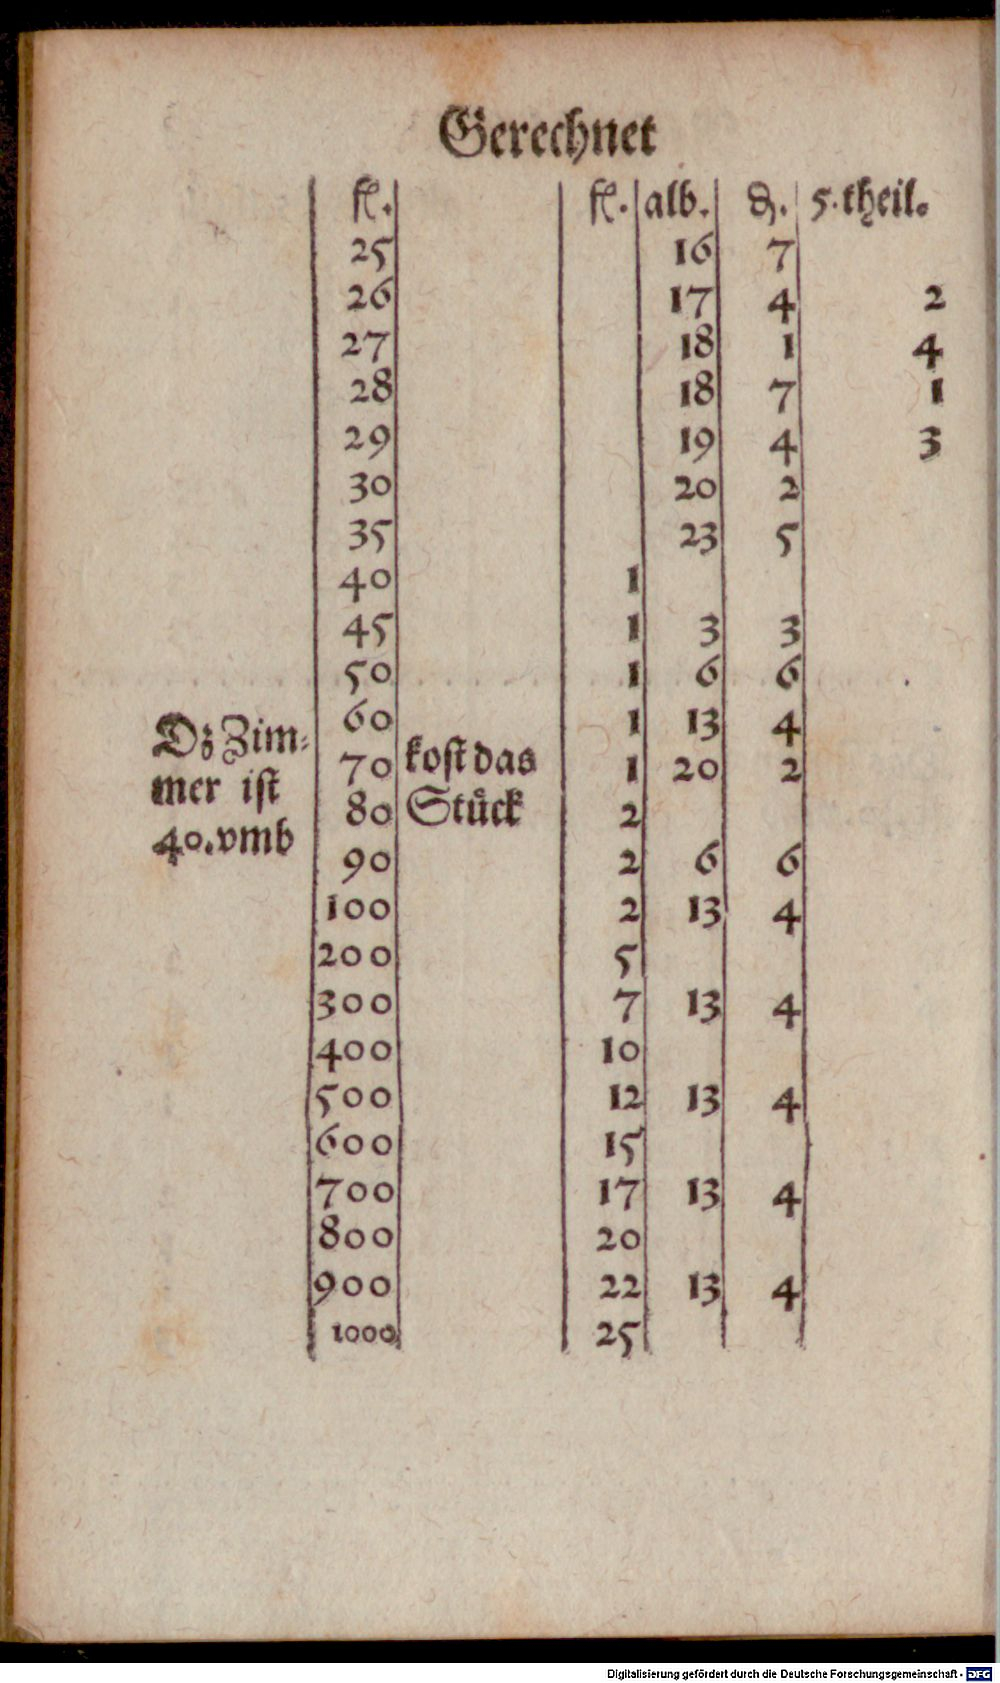 Gerechnet
fl. fl. alb. ₰. 5.theil.
25 16 7
26 17 4 2
27 18 1 4
28 18 7 1
29 19 4 3
30 20 2
35 23 5
40 1
45 1 3 3
50 1 6 6
60 1 13 4
Dz Zim⸗ 70 kost das 1 20 2
mer ist 80 Stůck 2
40.vmb 90 2 6 6
100 2 13 4
200 5
300 7 13 4
400 10
500 12 13 4
600 15
700 17 13 4
800 20
900 22 13 4
1000 25
Digitalisierung gefördert durch die Deutsche Forschungsgemeinschaft - DFG